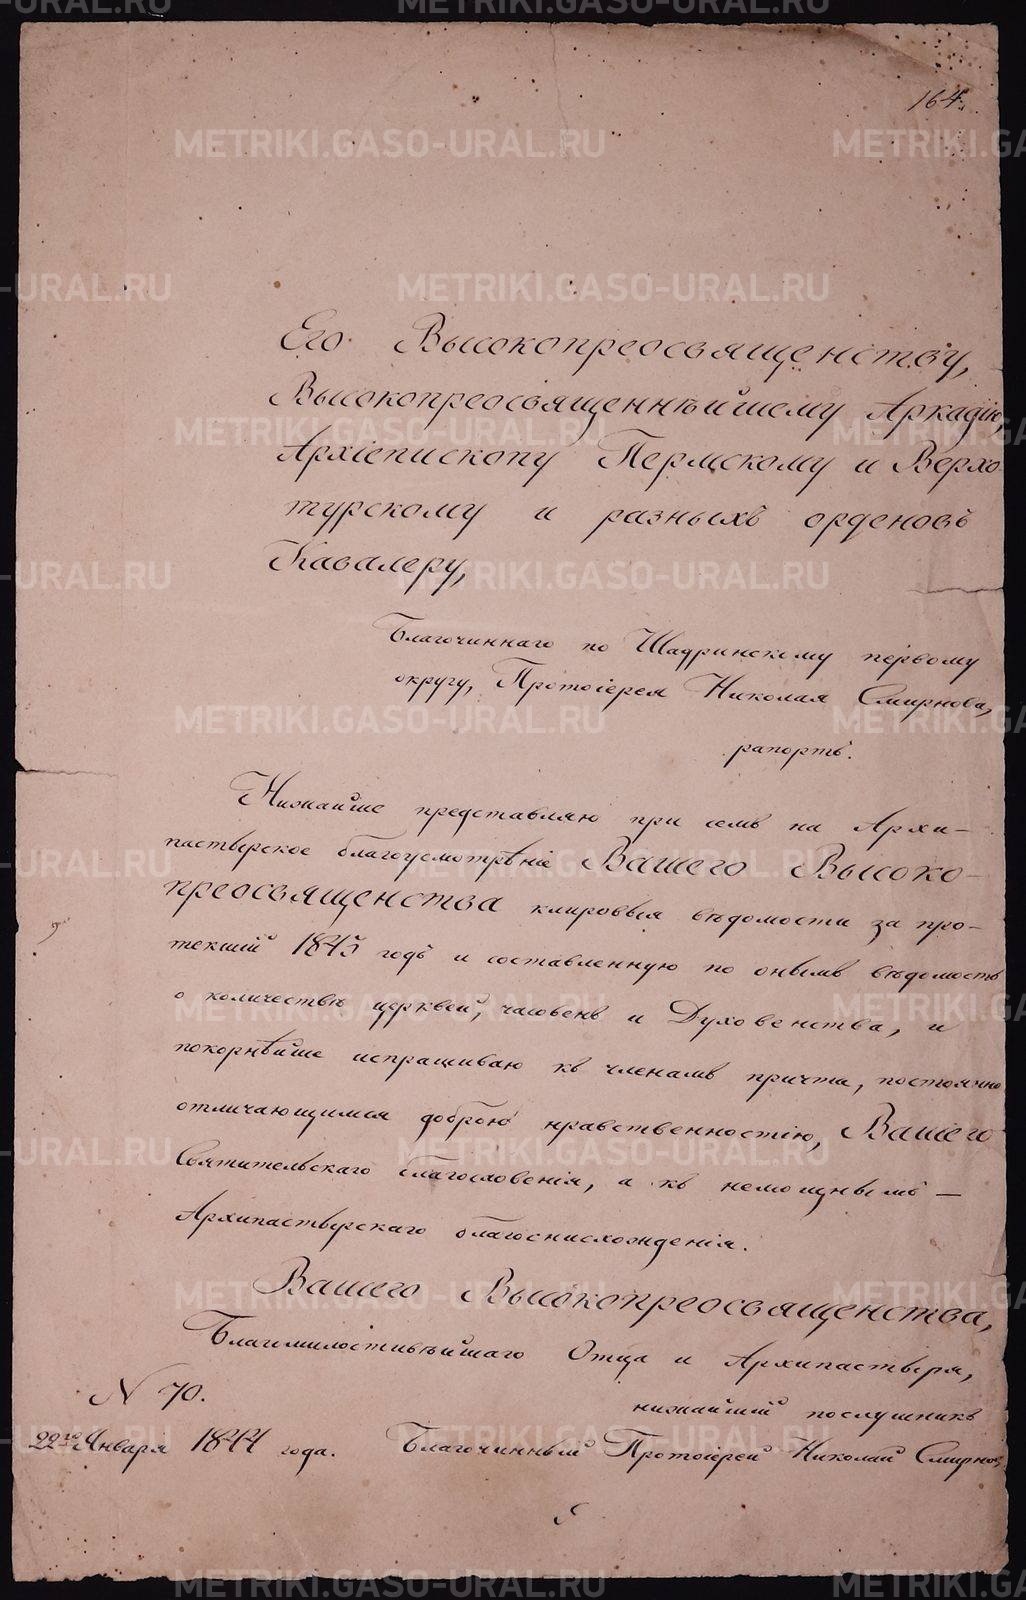 164.
Его Высокопреосвященству,
Высокопреосвященнѣйшему Аркадію,
Архіепископу Пермскому и Верхо-
турскому и разныхъ орденовъ
Кавалеру,
Благочиннаго по Шадринскому первому
округу, Протоіерея Николая Смирнова,
рапортъ.
Нижайше представляю при семъ на Архи-
пастырское благоусмотрѣніе Вашего Высоко-
преосвященства клировыя вѣдомости за про-
текшій 1843 годъ и составленную по онымъ вѣдомость
о количествѣ церквей, часовенъ и Духовенства, и
покорнѣйше испрашиваю къ членамъ причта, постоянно
отличающимся доброю нравственностію, Вашего
Святительскаго благословенія, а къ немощнымъ —
Архипастырскаго благоснисхожденія.
Вашего Высокопреосвященства,
Благимилостивѣйшаго Отца и Архипастыря,
нижайшій послушникъ
N 70.
22го Января 1844 года. Благочинный Протоіерей Николай Смирновъ
METRIKI.GASO-URAL.RU